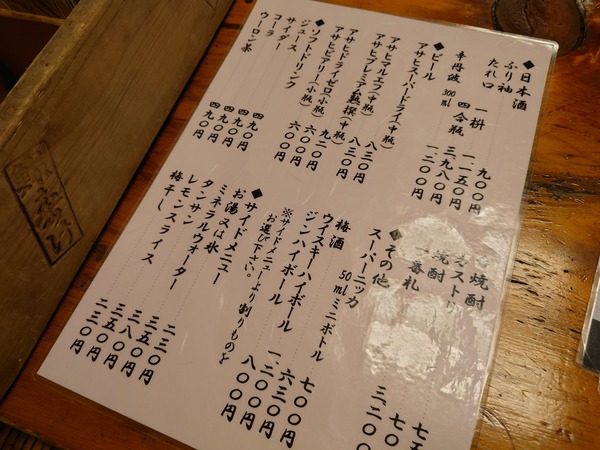 ◆日本酒
ふり袖 一枡 九〇〇円
たれ口 一、一五〇円
四合瓶 三、九八〇円
辛丹波 300ml 一、二〇〇円
◆ビール
アサヒスーパードライ(中瓶) 八三〇円
アサヒマルエフ(中瓶) 八三〇円
アサヒプレミアム熟撰(中瓶) 九二〇円
アサヒドライゼロ(小瓶) 六〇〇円
アサヒビアリー(小瓶) 六〇〇円
◆ソフトドリンク
ジュース 四九〇円
サイダー 四九〇円
コーラ 四九〇円
ウーロン茶 四九〇円
焼酎
カストリ
焼酎
一番札
◆その他
スーパーニッカ
50mlミニボトル 七〇〇円
梅酒 六三〇円
ウイスキーハイボール 一、二〇〇円
ジンハイボール 八〇〇円
※サイドメニューより割りものを
お選び下さい。
◆サイドメニュー
お湯又は氷 二三〇円
ミネラルウォーター 三五〇円
タンサン 三八〇円
レモンスライス 三五〇円
梅干し 二三〇円